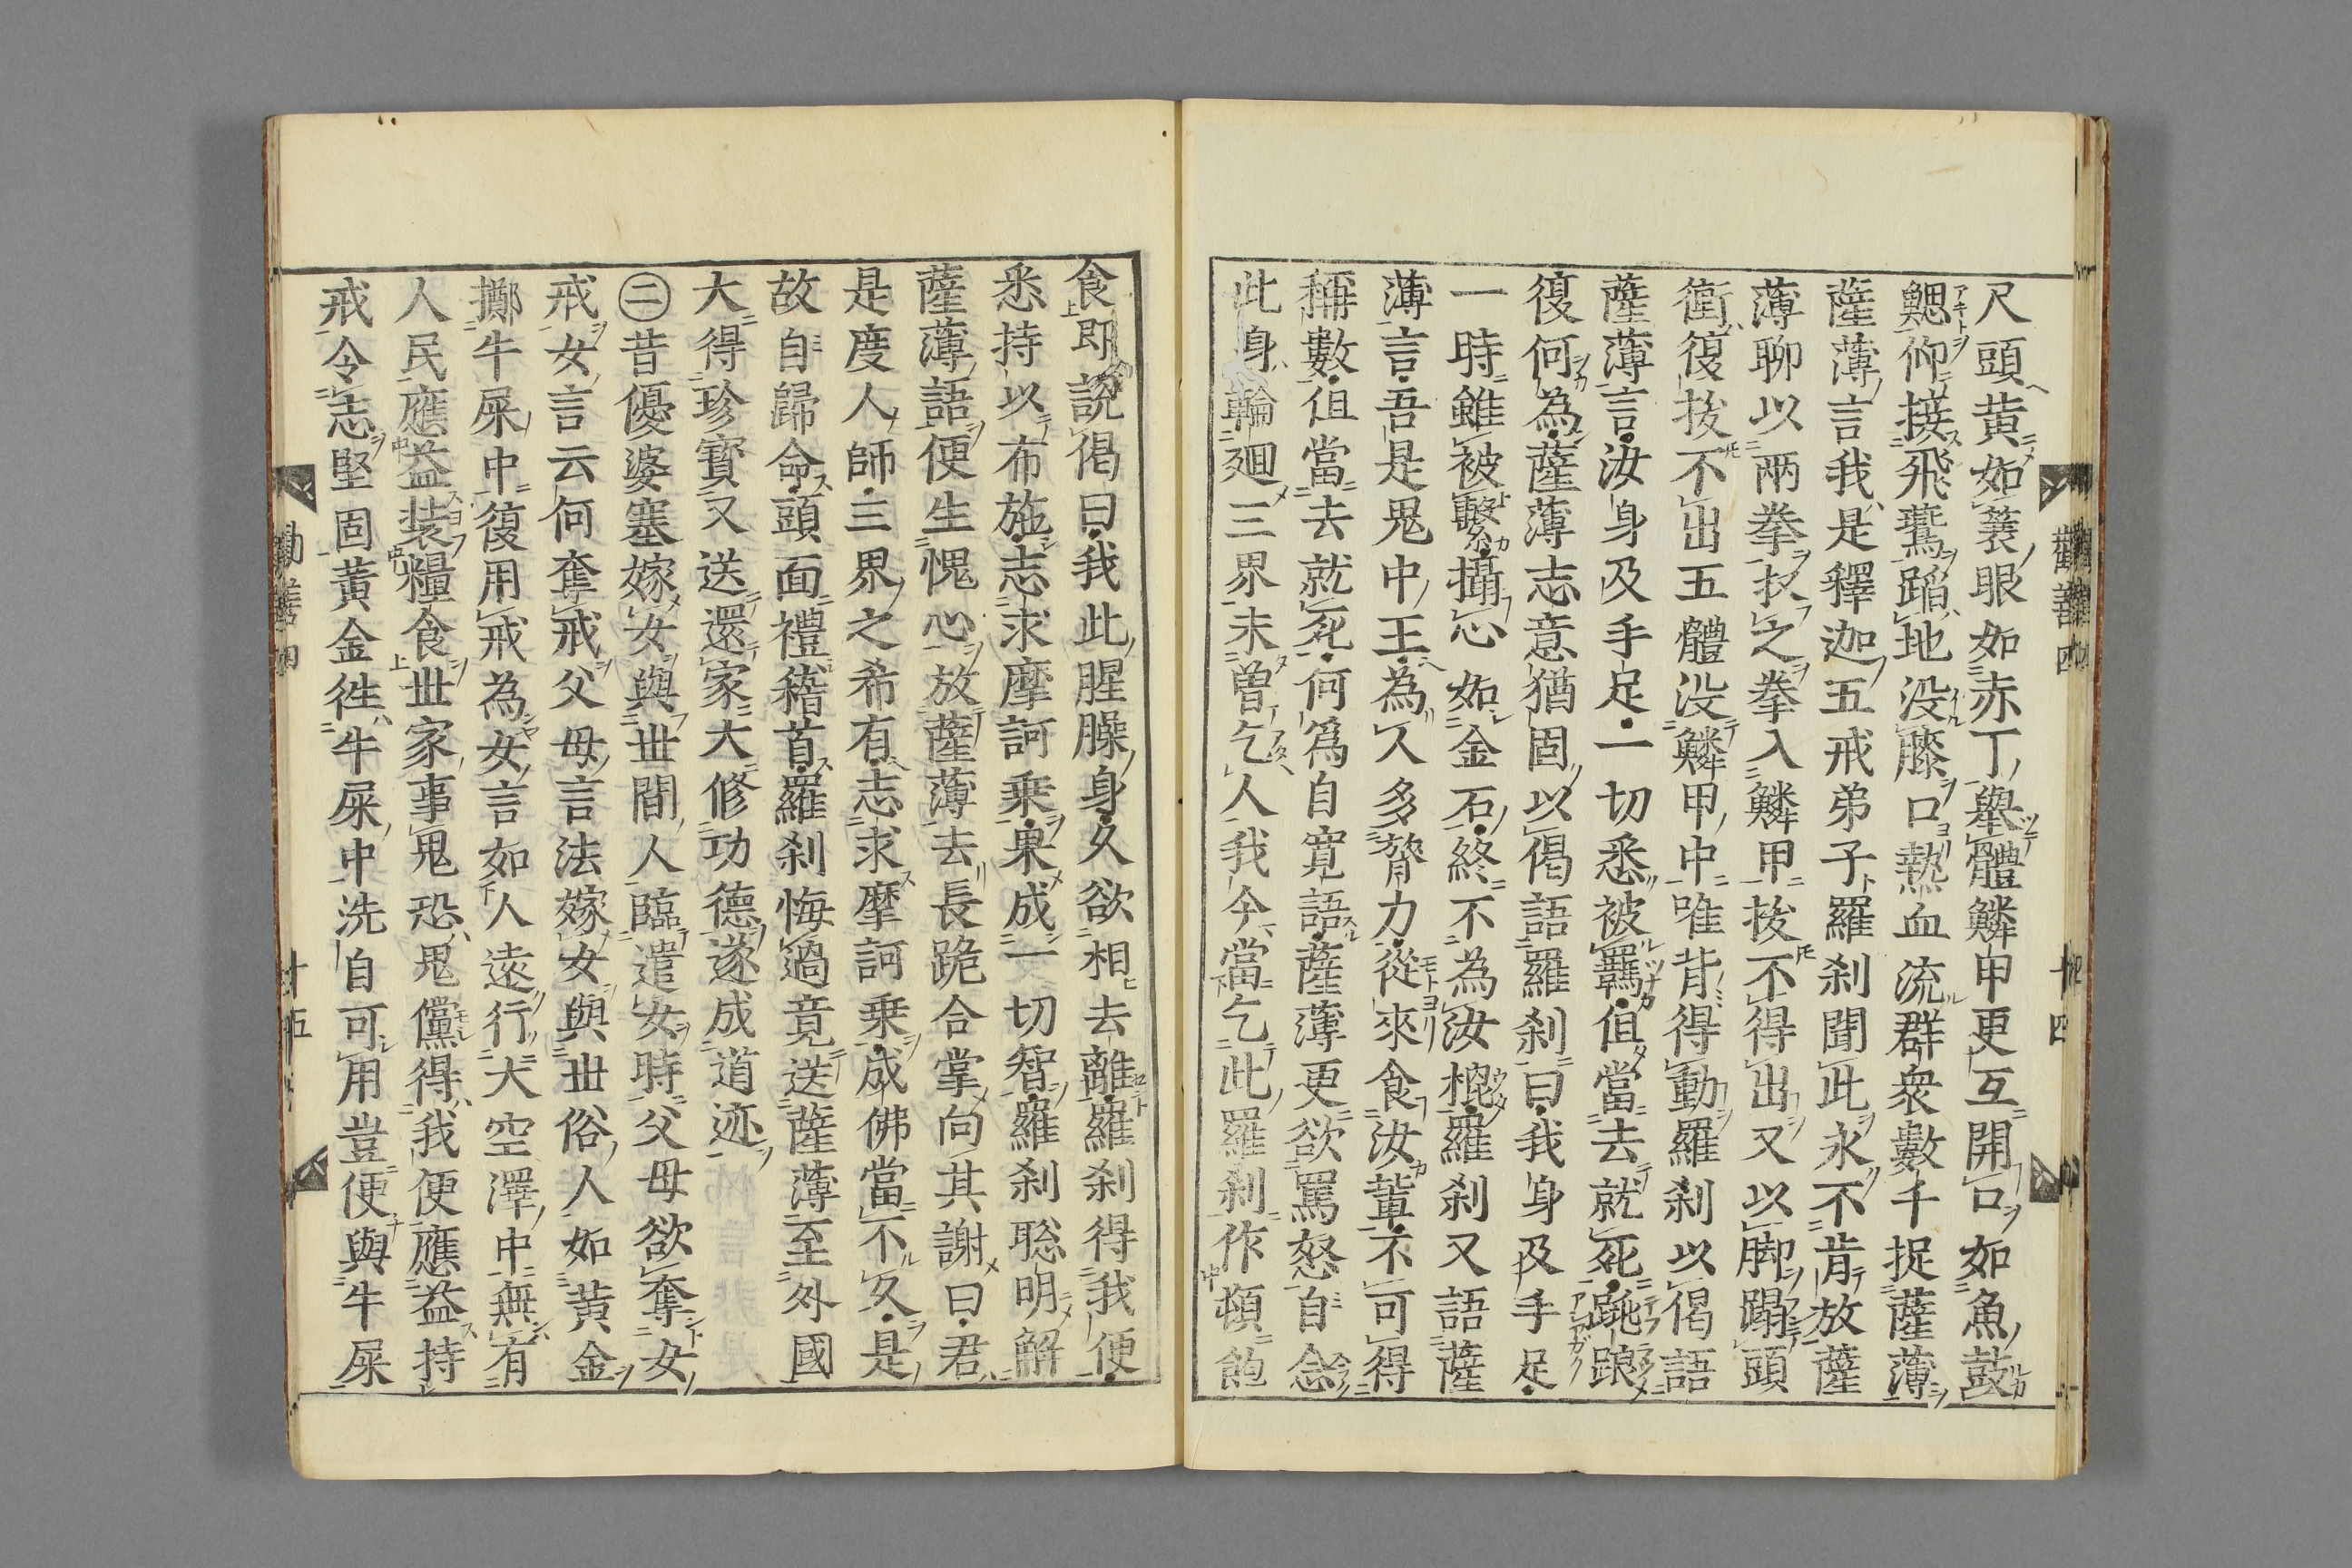 尺頭黄如蓑眼如赤丁擧體鱗甲更互開口如魚鼓
鰓仰接飛鷰蹈地没膝口熱血流群衆數千捉薩薄
薩薄言我是釋迦五戒弟子羅刹聞此永不肯放薩
薄聊以兩拳扠之拳入鱗甲抜不得出又以脚蹋頭
衝復抜不出五體没鱗甲中唯背得動羅刹以偈語
薩薄言汝身及手足一切悉被羈但當去就死跳踉
復何為薩薄志意猶固以偈語羅刹曰我身及手足
一時雖被繋攝心如金石終不為汝㨪羅刹又語薩
薄言吾是鬼中王為人多膂力從來食汝輩不可得
稱數但當去就死何為自寛語薩薄更欲罵怒自念
此身輪廻三界未曽乞人我今當乞此羅刹作頓飽
食即說偈曰我此腥臊身久欲相去離羅刹得我便
悉持以布施志求摩訶乗果成一切智羅刹聡明解
薩薄語便生愧心放薩薄去長跪合掌向其謝曰君
是度人師三界之希有志求摩訶乗成佛當不久是
故自歸命頭面禮稽首羅刹悔過竟送薩薄至外國
大得珍寶又送還家大修功德遂成道迹
㊁昔優婆塞嫁女與世間人臨遣女時父母欲奪女
戒女言云何奪戒父母言法嫁女與世俗人如黄金
擲牛屎中復用戒為女言如人遠行大空澤中無有
人民應益装糧食世家事鬼恐鬼儻得我便應益持
戒令志堅固黄金徃牛屎中洗自可用豈便與牛屎
勸善四
十四
十五